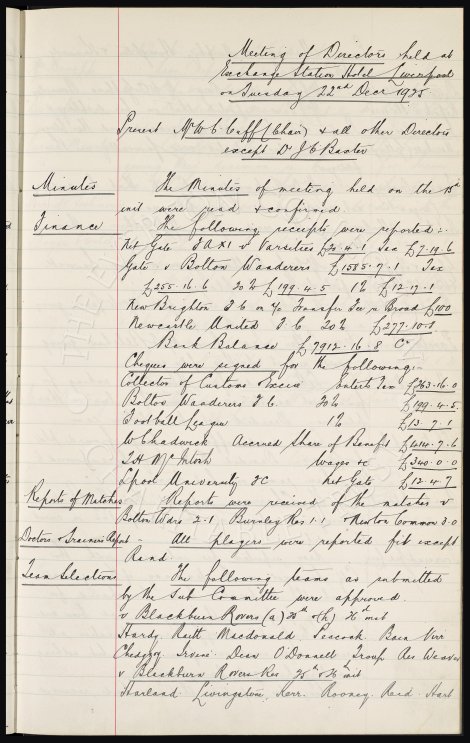 Meeting of Directors held at
Exchange Station Hotel Liverpool
on Tuesday 22nd Decr 1925
Present Mr W C Cuff (Chair) & all other Directors
except Dr J C Baxter
Minutes The Minutes of meeting held on the 15th
inst were read & confirmed.
Finance The following receipts were reported :-
Net Gate "A" XI v Varsities £24.4.1 Tax £7.19.6
Gate v Bolton Wanderers £1585.7.1 Tax
£255.16.6 20% £199.4.5 1% £12.17.1
New Brighton F C on a/c Transfer Fee re Broad £100
Newcastle United F C 20% £277.10.1
Bank Balance £7912.16.8 Cr
Cheques were signed for the following :-
Collector of Customs & Excise Enterts Tax £263.16.0
Bolton Wanderers F C 20% £199.4.5
Football League 1% £13.7.1
W Chadwick Accrued Share of Benefit £414.7.6
T H McIntosh Wages &c £340.0.0
Lpool University FC Net Gate £12.4.7
Reports of Matches Reports were received of the matches v
Bolton Wdrs 2-1 Burnley Res 1-1 Newton Common 3-0
Doctors & Trainers Report - All players were reported fit except
Rand.
Team Selections The following teams as submitted
by the Sub Committee were approved
v Blackburn Rovers (a) 25th & (h) 26th inst
Hardy Raitt Macdonald Peacock Bain Virr
Chedgzoy Irvine Dean O'Donnell Troup Res Weaver
v Blackburn Rovers Res 25th & 26th inst
Harland Livingstone Kerr Rooney Reid Hart